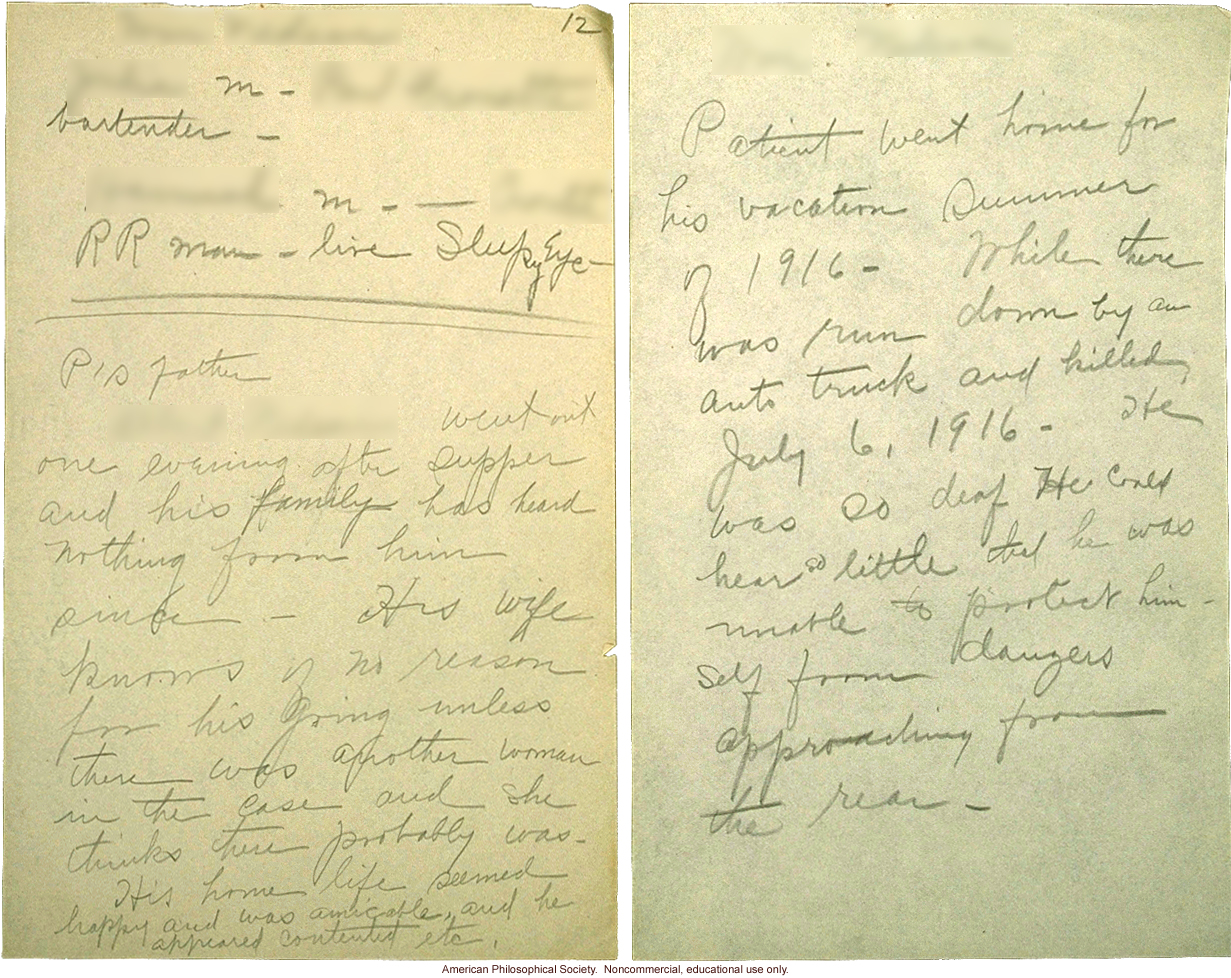 12
m -
bartender -
m - —
RR man - live Sleepy Eye -
P's father
went out
one evening after supper
and his family has heard
nothing from him
since - His wife
knows of no reason
for his going unless
there was another woman
in the case and she
thinks there probably was -
His home life seemed
happy and was amicable, and he
appeared contented etc.
Patient went home for
his vacation summer
of 1916 - While there
was run down by an
auto truck and killed,
July 6, 1916 - He
was so deaf He could
hear so little that he was
unable to protect him-
self from dangers
approaching from
the rear -
American Philosophical Society. Noncommercial, educational use only.